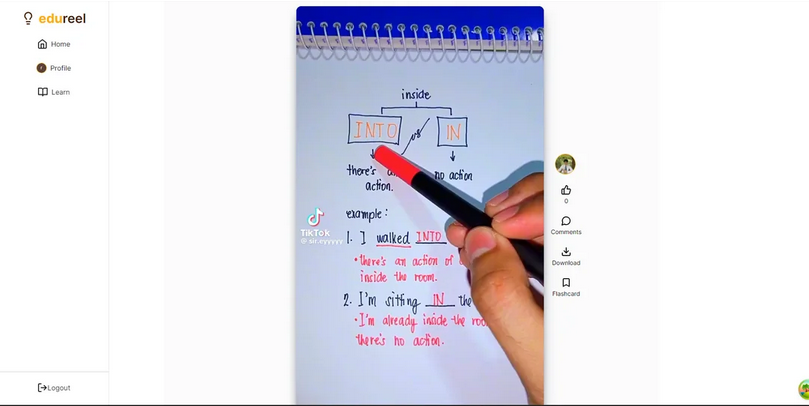 edureel
Home
Profile
Learn
inside
INTO vs IN
there's
action.
no action
example:
1. I walked INTO
• there's an action of
inside the room.
2. I'm sitting IN the
• I'm already inside the
there's no action.
TikTok
@ sir.eyyyyy
0
Comments
Download
Flashcard
Logout